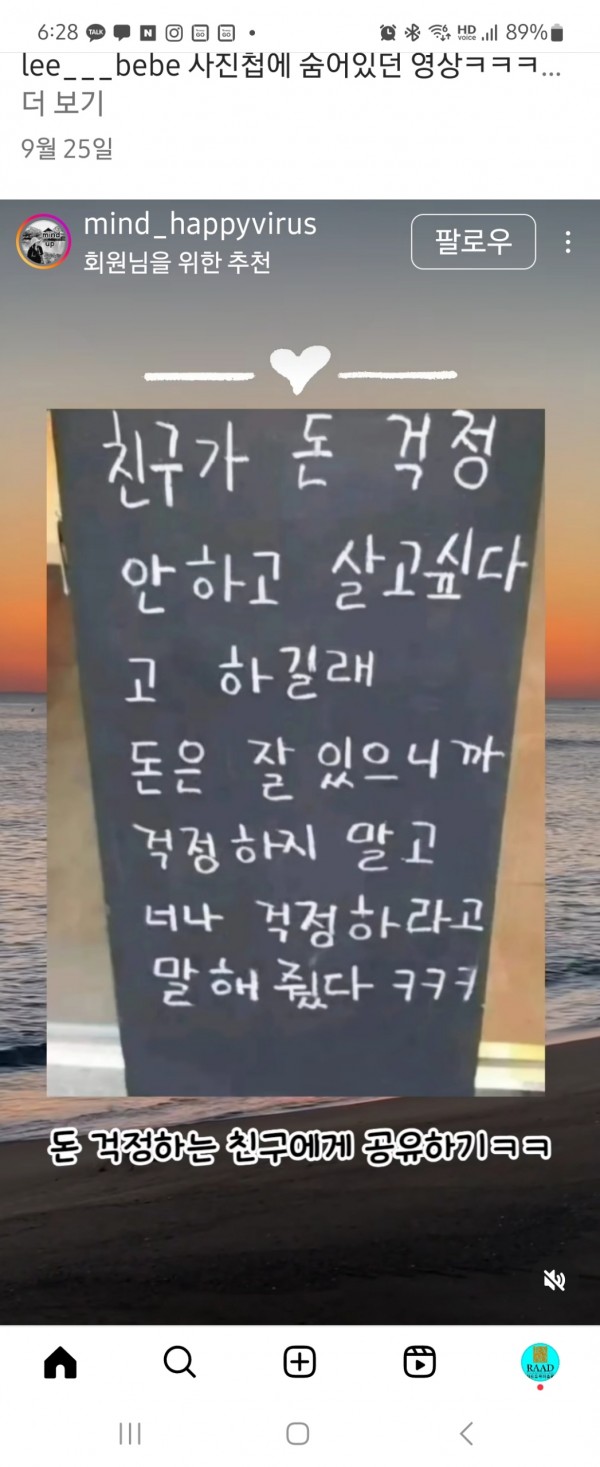 6:28
TALK
N
GO
GO
HD
voice
89%
lee___bebe 사진첩에 숨어있던 영상ㅋㅋㅋ...
더 보기
9월 25일
mind
up
mind_happyvirus
회원님을 위한 추천
팔로우
친구가 돈 걱정
안하고 살고싶다
고 하길래
돈은 잘 있으니까
걱정하지 말고
너나 걱정하라고
말해 줬다 ㅋㅋㅋ
돈 걱정하는 친구에게 공유하기ㅋㅋ
RAAD